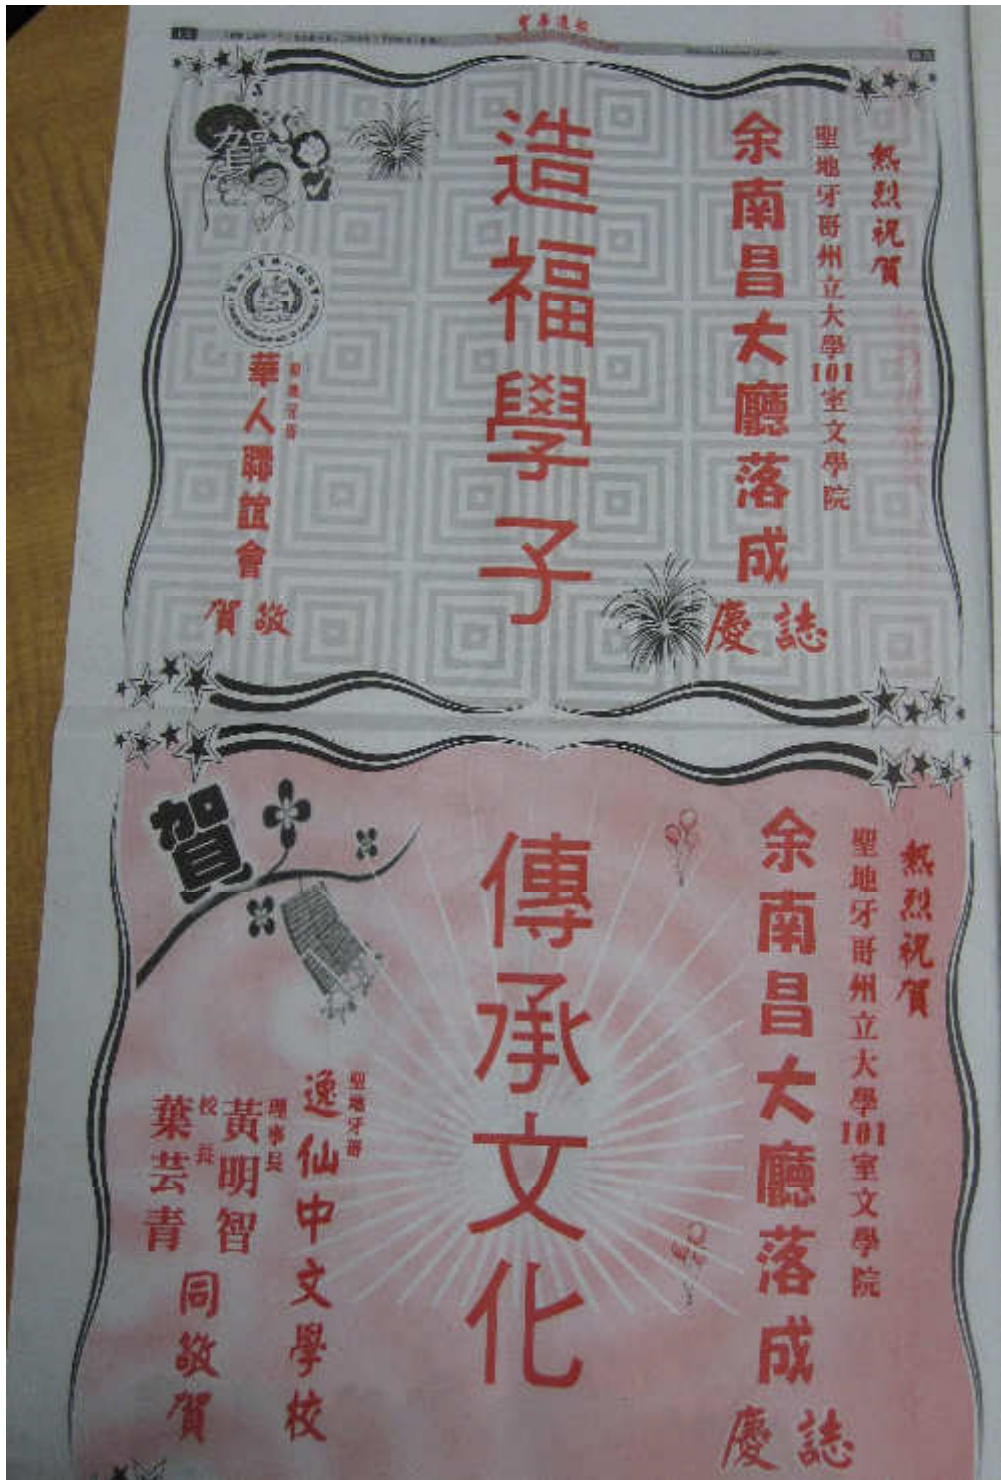 聖華週報
熱烈祝賀
聖地牙哥州立大學101室文學院
余南昌大廳落成
誌慶
造福學子
賀
聖地牙哥
華人聯誼會
敬賀
熱烈祝賀
聖地牙哥州立大學101室文學院
余南昌大廳落成
誌慶
傳承文化
賀
聖地牙哥
逸仙中文學校
理事長
黃明智
校長
葉芸青
同敬賀